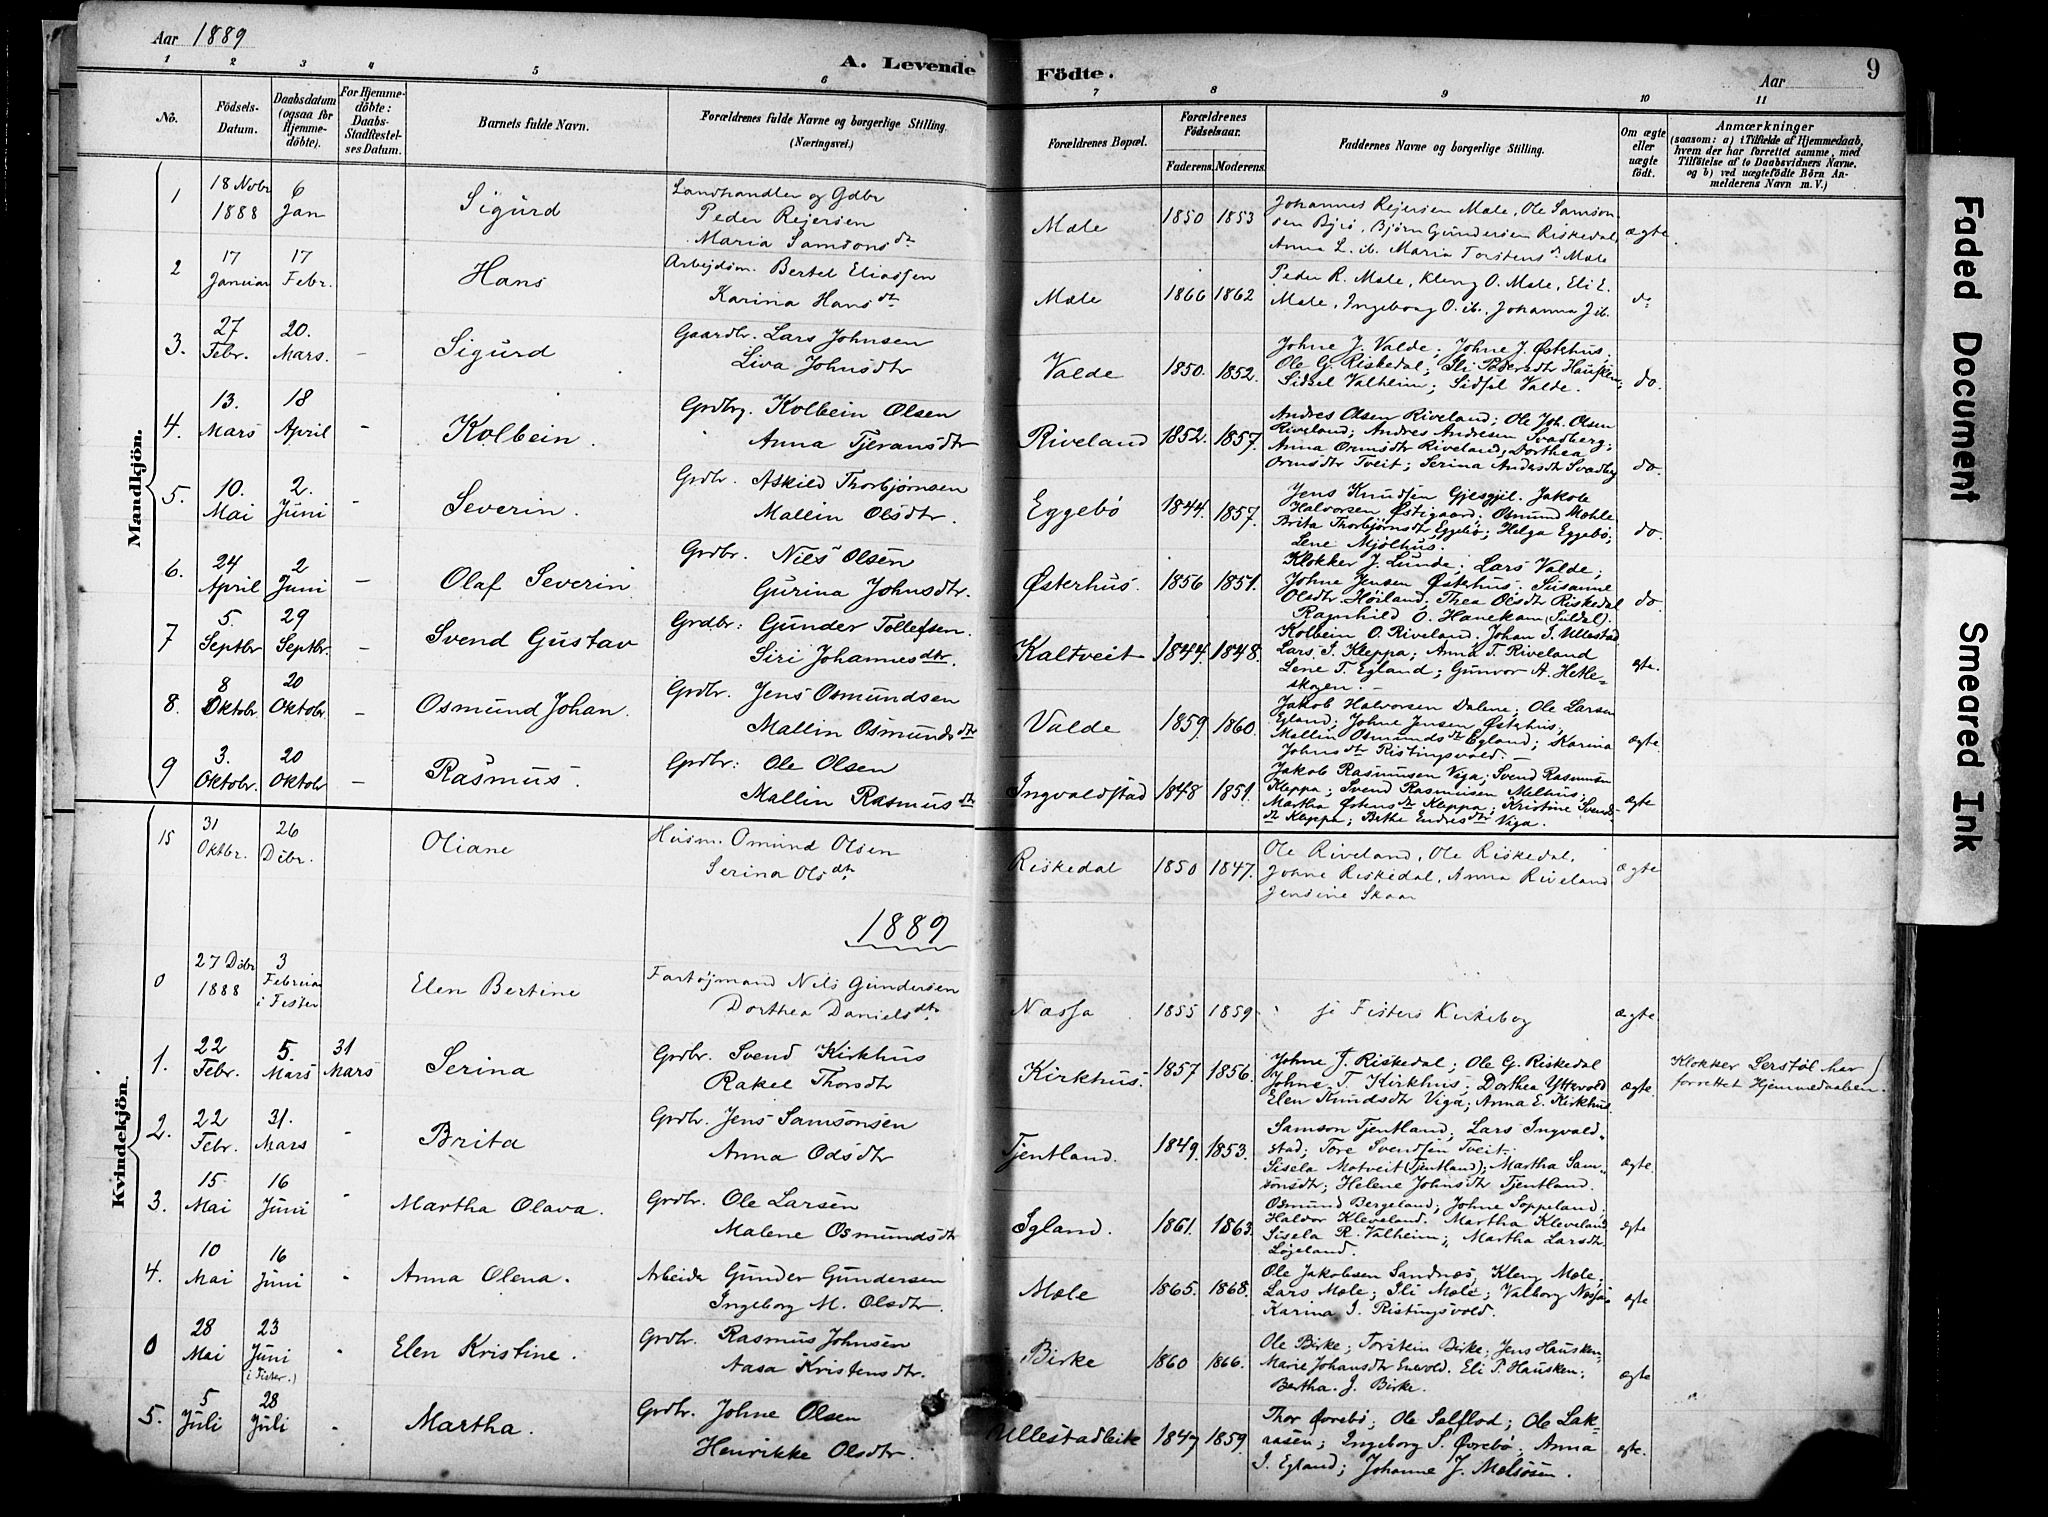 Aar 1889
A. Levende Födte.
Aar
9
1 2 3 4 5 6 7 8 9 10 11
No.
Födsels-Datum.
Daabsdatum (ogsaa for Hjemme-döbte).
For Hjemme-döbte: Daabs-Stadfæstel-ses Datum.
Barnets fulde Navn.
Forældrenes fulde Navne og borgerlige Stilling. (Næringsvei.)
Forældrenes Bopæl.
Forældrenes Födselsaar.
Faderens. Moderens.
Faddernes Navne og borgerlige Stilling.
Om ægte eller uægte födt.
Anmærkninger
(saasom: a) i Tilfælde af Hjemmedaab, hvem der har forrettet samme, med Tilföielse af to Daabsvidners Navne. og b) ved uægtefödte Börn An-melderens Navn m. V.)
Mandkjön.
1 18 Novbr 1888 6 Jan Sigurd Landhandler og Gdbr Peder Rejersen Maria Samsonsdtr Mæle 1850 1853 Johannes Rejersen Mæle, Ole Samson-sen Bjiö, Bjørn Gundersen Riskedal, Anna L. ib. Maria Torstensdtr Mæle ægte
2 17 Januar 17 Febr. Hans Arbejdsm. Bertel Eliassen Karina Hansdtr Mæle 1866 1862 Peder R. Mæle, Kleng O. Mæle, Eli E. Mæle, Ingeborg O. ib., Johanna J ib. do
3. 27 Febr. 20. Mars. – Sigurd Gaardbr. Lars Johnsen Liva Johnsdtr Valde 1850. 1852. Johne J. Valde; Johne J. Østerhus; Ole G. Riskedal; Ili Pedersdtr Hausken; Sidsel Valheim; Sidsel Valde. do.
4. 13. Mars 18 April – Kolbein. Grdbr. Kolbein Olsen Anna Tjeransdtr Riveland 1852. 1857. Andres Olsen Riveland; Ole Joh. Olsen Riveland; Andres Andresen Svadberg; Anna Ormsdtr Riveland, Dorthea Ormsdtr Tveit; Serina Andersdtr Svadbg do.
5. 10. Mai 2. Juni – Severin. Grdbr. Askild Thorbjørnsen Mallin Olsdtr. Eggebø 1844. 1857. Jens Knudsen Gjesgjil. Jakob Halvorsen Østigaard. Osmund Mæhle Brita Thorbjørnsdtr Eggebø; Helga Eggebø; Lene Mjølhus. do.
6. 24 April 2 Juni – Olaf Severin. Grdbr. Nils Olsen Gurina Johnsdtr. Østerhus. 1856 1851. Klokker J. Lunde; Lars Valde; Johne Jensen Østerhus; Susanne Olsdtr. Høiland; Thea Olsdtr Riskedal Ragnhild O. Hanekam (Suldal). do.
7 5. Septbr 29 Septbr. – Svend Gustav Grdbr: Gunder Tollefsen. Siri Johannesdtr. Kaltveit 1844. 1848. Kolbein O. Riveland. Johan I. Ullestad Lars I. Kleppa; Anna T. Riveland Lene T. Egland; Gunvor A. Hetle-skogen. ægte.
8. 8 Oktobr. 20 Oktobr – Osmund Johan. Grdbr. Jens Osmundsen Mallin Osmundsdtr Valde 1859 1860. Jakob Halvorsen Dalene; Ole Larsen Egland; Johne Jensen Østerhus; Mallin Osmundsdtr Egland; Karina Johnsdtr Ristingsvold. ægte
9 3. Oktobr. 20 Oktobr – Rasmus. Grdbr: Ole Olsen Mallin Rasmusdtr Ingvaldstad 1848 1851. Jakob Rasmusen Viga; Svend Rasmusen Kleppa; Svend Rasmusen Melhus; Martha Østensdtr Kleppa; Kristine Svends-dtr Kleppa; Berthe Endresdtr Viga. ægte
15 31 Oktbr. 26 Dcbr. Oliane Husm. Omund Olsen Serina Olsdtr. Riskedal 1850 1847. Ole Riveland, Ole Riskedal, Johne Riskedal, Anna Riveland Jensine Skaar ægte
1889
Kvindekjön.
0 27 Dcbr 1888 3 Februar i Fister Elen Bertine Fartøjmand Nils Gundersen Dorthea Danielsdtr. Næssa 1855 1859 se Fisters Kirkebog ægte.
1. 22 Febr. 5. Mars 31 Mars Serina Grdbr. Svend Kirkhus Rakel Thorsdtr Kirkhus. 1857 1856. Johne J. Riskedal; Ole G. Riskedal Johne T. Kirkhus; Dorthea Yttrvold Elen Knudsdtr Viga; Anna E. Kirkhus. ægte. Klokker Serstøl har forrettet Hjemmedaaben.
2. 22 Febr. 31. Mars - Brita Grdbr. Jens Samsonsen Anna Odsdtr Tjentland. 1849. 1853. Samson Tjentland; Lars Ingvald-stad; Tore Svendsen Tveit. Sisela Motveit (Tjentland); Martha Sam-sonsdtr; Helene Johnsdtr Tjentland. ægte.
3. 15. Mai 16 Juni - Martha Olava. Grdbr. Ole Larsen Malene Osmundsdtr Igland. 1861. 1863. Osmund Bergeland; Johne Soppeland; Haldor Kleveland. Martha Kleveland Sisela R. Valheim; Martha Larsdtr. Løgeland. ægte
4. 10 Mai 16 Juni - Anna Olena. Arbeider Gunder Gundersen Ingeborg M. Olsdtr. Mæle 1865. 1868. Ole Jakobsen Sandnæs; Kleng Mæle; Lars Mæle; Ili Mæle; Valborg Næssa Karina I. Ristingsvold. ægte
0 28 Mai 23 Juni (i Fister.) - Elen Kristine. Grdbr. Rasmus Johnsen Aasa Kristensdtr. Birke 1860 1866. Ole Birke; Torstein Birke; Jens Hausken; Marie Johansdtr Enevold. Eli P. Hausken; Bertha. J. Birke. ægte
5. 5 Juli 28 Juli - Martha. Grdbr. Johne Olsen Henrikke Olsdtr. Ullestadleite 1847 1859. Thor Øvrebø; Ole Selflod; Ole Lak-aasen; Ingeborg S. Øvrebø; Anna I. Egland; Johanne J. Melsøsen. ægte.
Faded Document
Smeared Ink